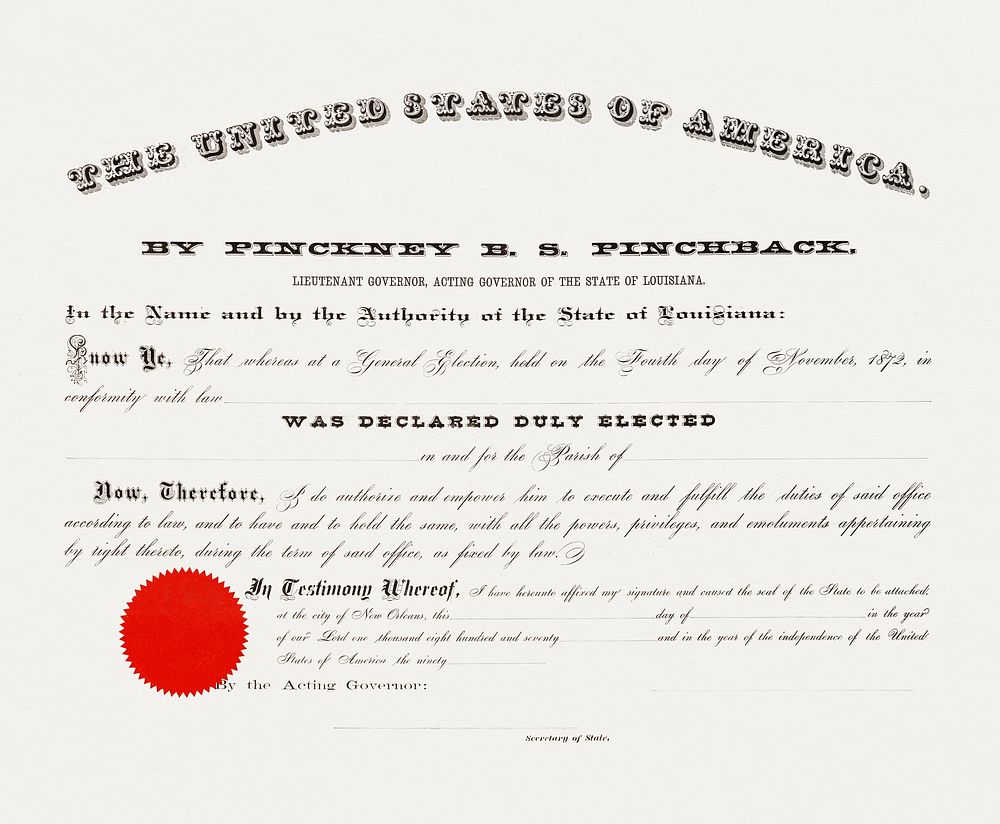 THE UNITED STATES OF AMERICA.
BY PINCKNEY B. S. PINCHBACK,
LIEUTENANT GOVERNOR, ACTING GOVERNOR OF THE STATE OF LOUISIANA.
In the Name and by the Authority of the State of Louisiana:
Know Ye, That whereas at a General Election, held on the Fourth day of November, 1872, in
conformity with law
WAS DECLARED DULY ELECTED
in and for the Parish of
Now, Therefore, I do authorize and empower him to execute and fulfill the duties of said office
according to law, and to have and to hold the same, with all the powers, privileges, and emoluments appertaining
by right thereto, during the term of said office, as fixed by law.
In Testimony Whereof, I have hereunto affixed my signature and caused the seal of the State to be attached,
at the city of New Orleans, this day of in the year
of our Lord one thousand eight hundred and seventy and in the year of the independence of the United
States of America the ninety
By the Acting Governor:
Secretary of State.